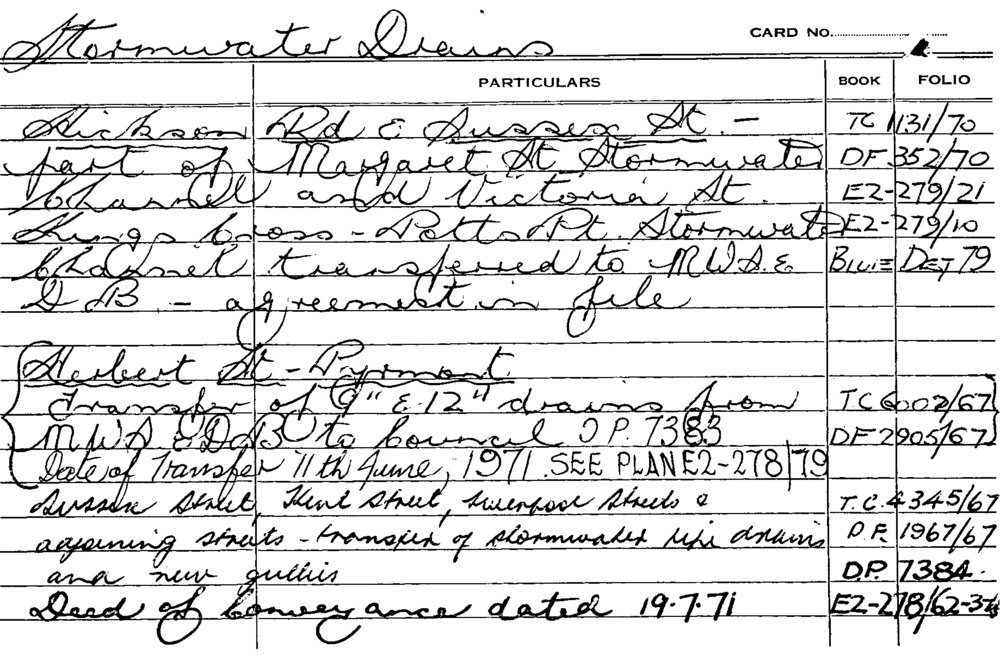 Stormwater Drains CARD No.
PARTICULARS BOOK FOLIO
Hickson Rd & Sussex St. - TC 1131/70
part of Margaret St Stormwater DF 352/70
Channel and Victoria St. E2-279/21
Kings Cross - Potts Pt. Stormwater E2-279/10
Channel transferred to M.W.S. & Blue Det 79
D.B. - agreement in file
Herbert St - Pyrmont
Transfer of 9" & 12" drains from TC 6002/67
M.W.S & D.B to Council D.P. 7383 DF 2905/67
Date of Transfer 11th June, 1971. SEE PLAN E2-278/79
Sussex Street, Kent Street, Liverpool Streets & T.C. 4345/67
adjoining streets - transfer of stormwater pipe drains D.F. 1967/67
and new gullies D.P. 7384.
Deed of Conveyance dated 19.7.71 E2-278/62-